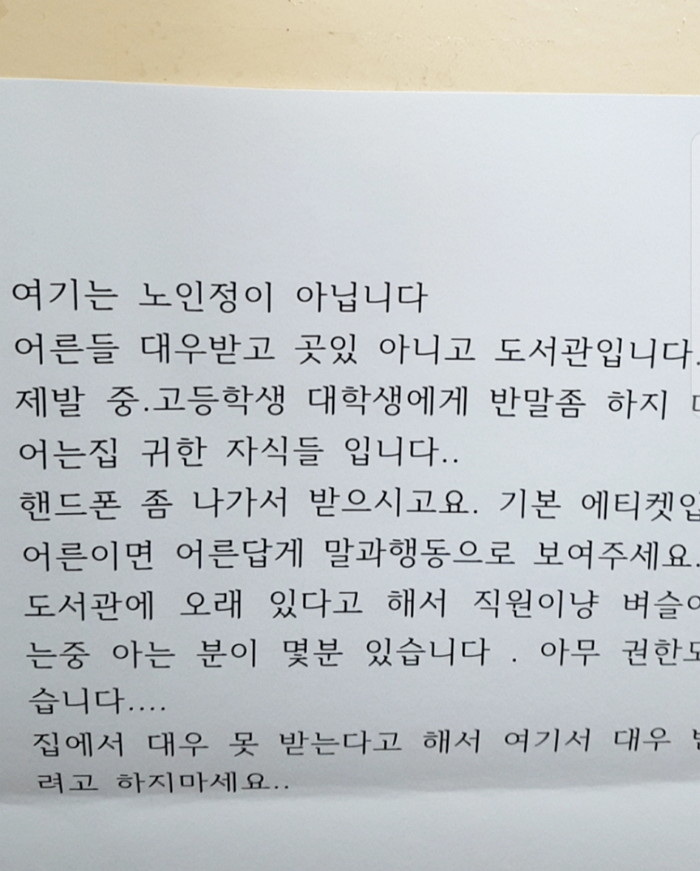 여기는 노인정이 아닙니다
어른들 대우받고 곳있 아니고 도서관입니다.
제발 중.고등학생 대학생에게 반말좀 하지
어는집 귀한 자식들 입니다..
핸드폰 좀 나가서 받으시고요. 기본 에티켓입
어른이면 어른답게 말과행동으로 보여주세요.
도서관에 오래 있다고 해서 직원이냥 벼슬이
는중 아는 분이 몇분 있습니다 . 아무 권한도
습니다....
집에서 대우 못 받는다고 해서 여기서 대우
려고 하지마세요..